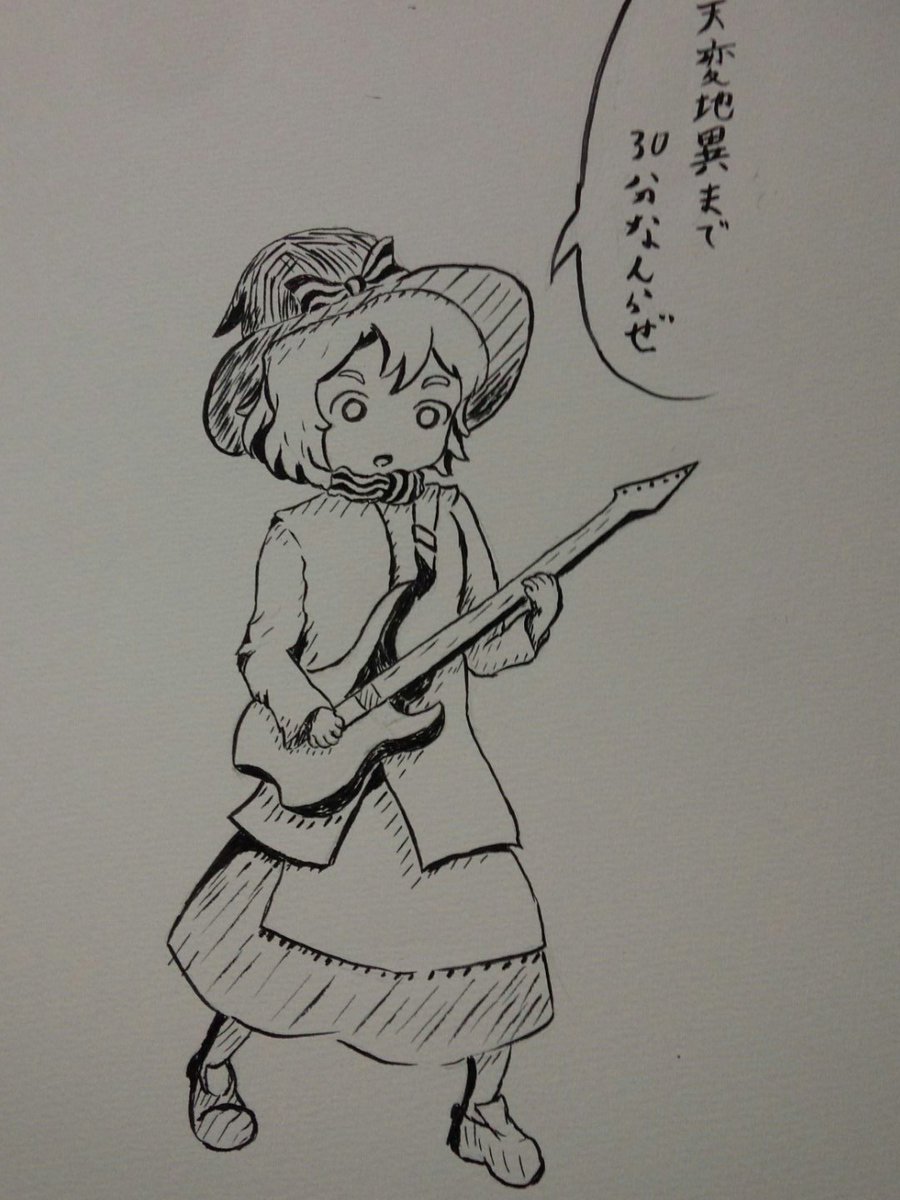 天変地異まで
30分なんだぜ